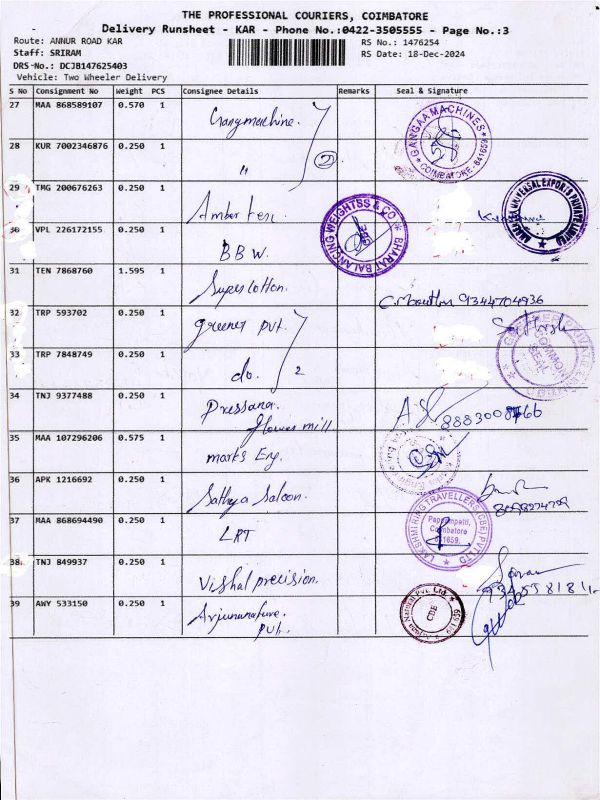 THE PROFESSIONAL COURIERS, COIMBATORE
Delivery Runsheet - KAR - Phone No.:0422-3505555 - Page No.:3
Route: ANNUR ROAD KAR
RS No.: 1476254
Staff: SRIRAM
RS Date: 18-Dec-2024
DRS-No.: DCJB147625403
Vehicle: Two Wheeler Delivery
S No Consignment No Weight PCS Consignee Details Remarks Seal & Signature
27 MAA 868589107 0.570 1
GANGAA MACHINES
COIMBATORE - 641659
28 KUR 7002346876 0.250 1 " 2
29 TMG 200676263 0.250 1
BHARAT BALANCING WEIGHTSS & CO
30 VPL 226172155 0.250 1 BBW.
31 TEN 7868760 1.595 1 9344704936
32 TRP 593702 0.250 1 greener pvt.
COMMON SEAL
33 TRP 7848749 0.250 1 do. 2
34 TNJ 9377488 0.250 1
35 MAA 107296206 0.575 1 marks Eng.
36 APK 1216692 0.250 1 Sathya Saloon.
37 MAA 868694490 0.250 1 LRT
LAKSHMI RING TRAVELLERS (CBE) PVT LTD
Pappampatti,
Coimbatore
641659.
38 TNJ 849937 0.250 1 Vishal precision.
39 AWY 533150 0.250 1 pvt.
CDE